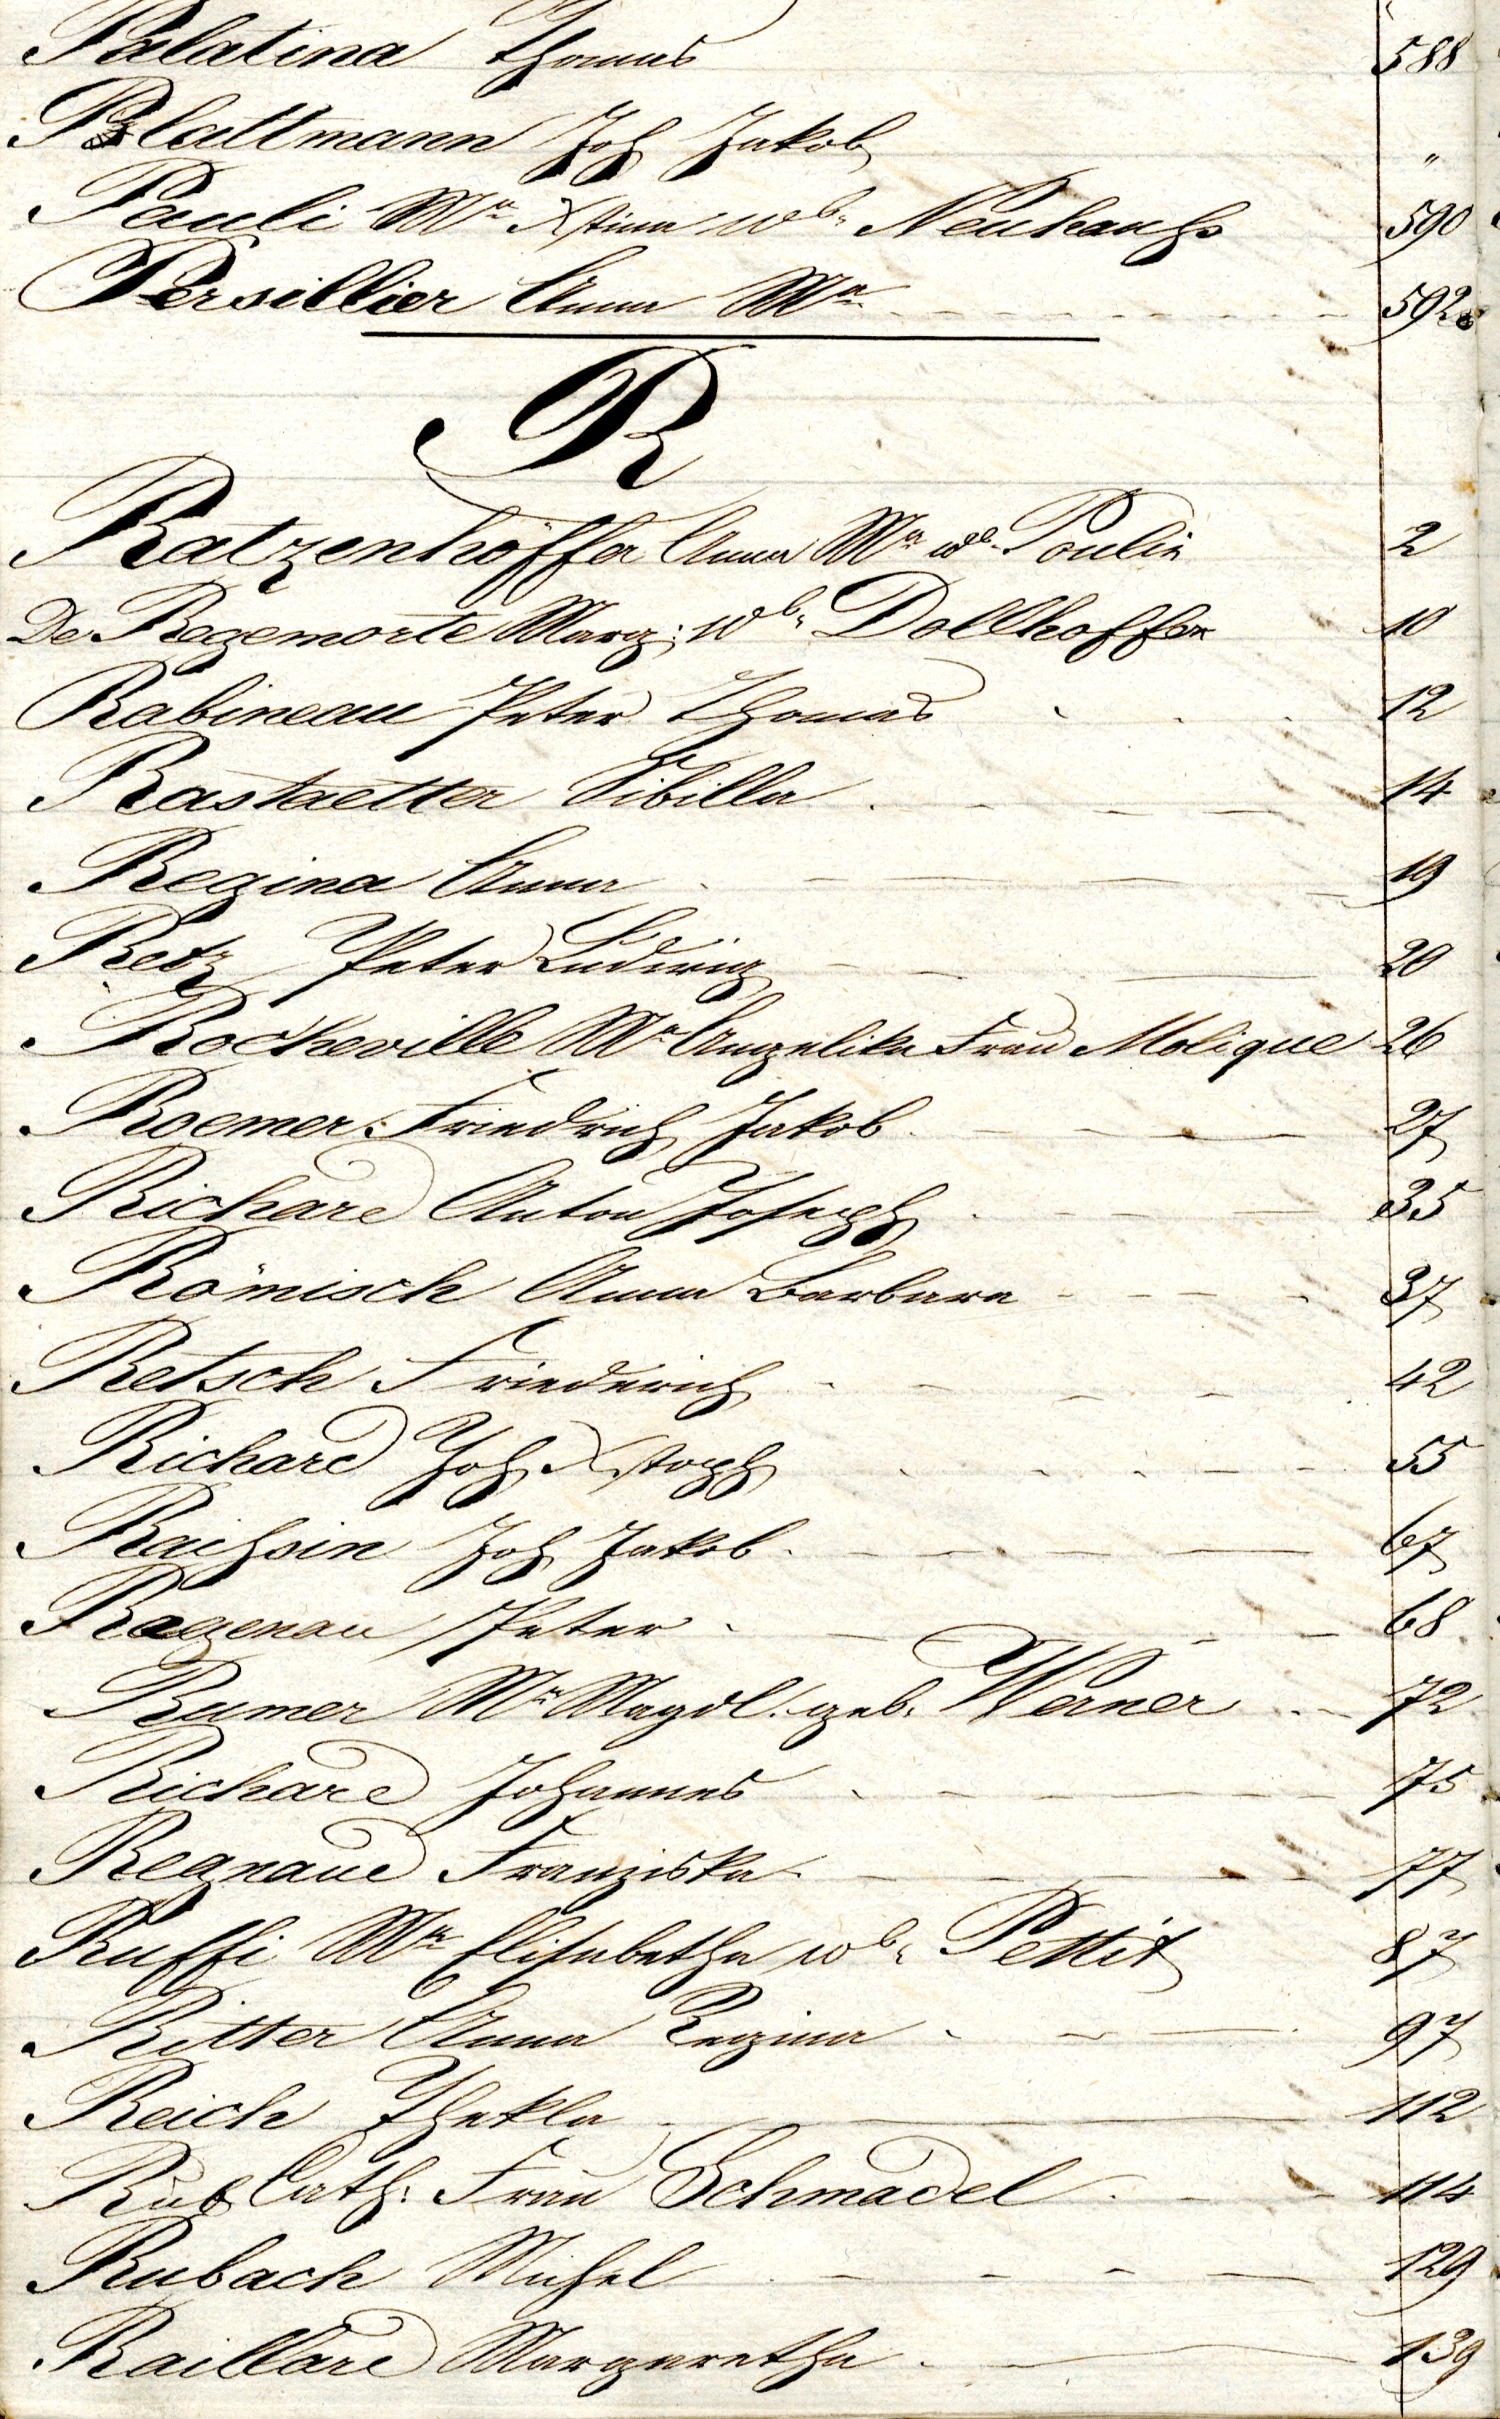 Palatina Thomas 588
Plattmann Joh Jakob "
Pauli Ma Xstina wb. Neuhauß 590
Persillier Anna Ma 592
R
Ratzenhöffer Anna Ma wb. Poulin 2
De Regemorte Marg: wb. Dollhoffen 10
Rabineau Peter Thomas 12
Rastaetter Sibilla 14
Regina Anna 19
Retz Peter Ludwig 20
Rocheville Ma Angelika Frau Molique 26
Roemer Friedrich Jakob 27
Richard Anton Joseph 35
Römisch Anna Barbara 37
Retsch Friederich 42
Richard Joh Xstoph 55
Joh Jakob 67
Ragenau Peter 68
Rumer Ma Magdl. geb. Werner 72
Richard Johannes 75
Regnaud Franziska 77
Ruffi Ma Elisabetha wb. Pettit 87
Ritter Anna Regina 97
Reich Thekla 112
Cath: Frau Schmadel 114
Rubach Michel 129
Raillard Margaretha 139